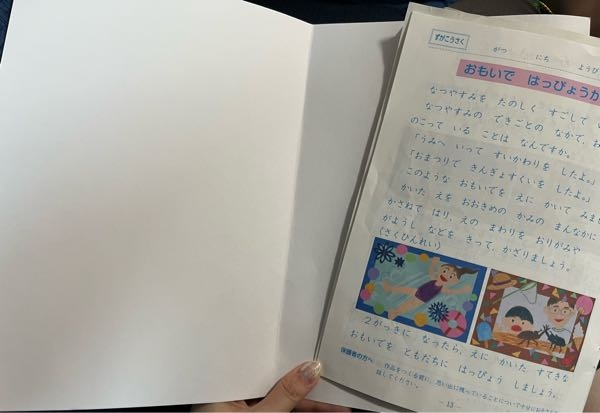 ずがこうさく
がつ にち ようび
おもいで はっぴょうか
なつやすみを たのしく すごして
なつやすみの できごとの なかで、
のこって いる ことは なんですか。
「うみへ いって すいかわりを したよ。」
「おまつりで きんぎょすくいを したよ。」
このような おもいでを えに かいて みま
かいた えを おおきめの かみの まんなかに
かさねて はり、えの まわりを おりがみや
がようし などを きって、かざりましょう。
(さくひんれい)
2がっきに なったら、えに かいた すてきな
おもいでを ともだちに はっぴょう しましょう。
保護者の方へ 作品をつくる前に、思い出に残っていることについて
話してください。
– 13